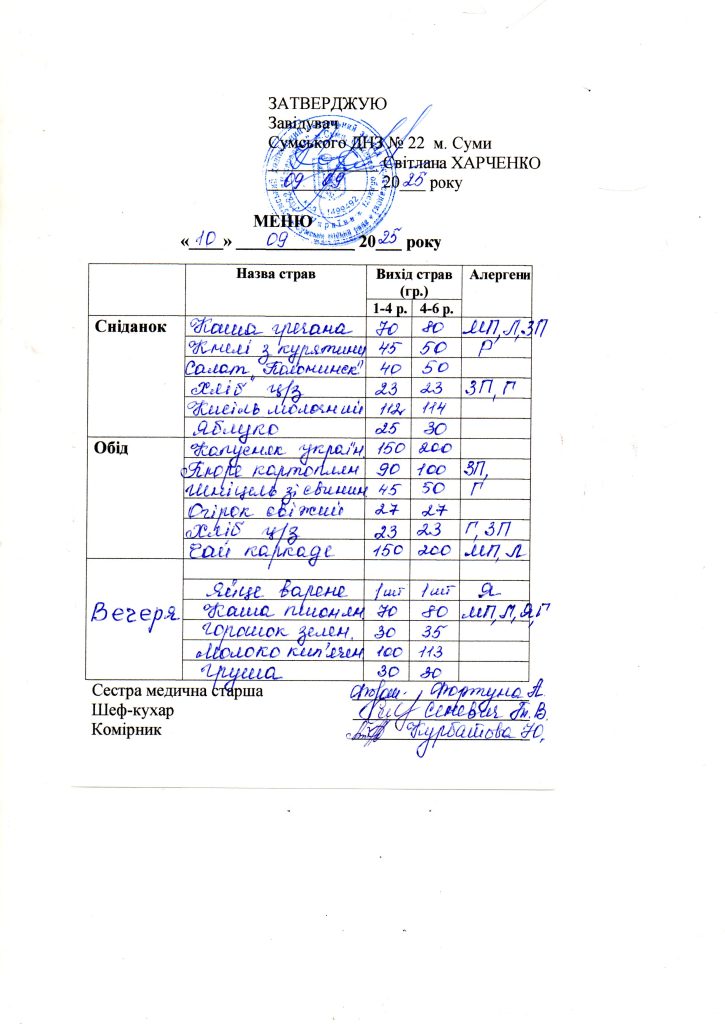 ЗАТВЕРДЖУЮ
Завідувач
Сумського ДНЗ № 22 м. Суми
Світлана ХАРЧЕНКО
09 09 2025 року
МЕНЮ
«10» 09 2025 року
Назва страв Вихід страв (гр.) Алергени
1-4 р. 4-6 р.
Сніданок Каша гречана 70 80 МП, Л, ЗП
Кнелі з курятини 45 50 Р
Салат "Полонинськ" 40 50
Хліб ц/з 23 23 ЗП, Г
Кисіль молочний 112 114
Яблуко 25 30
Обід Капусняк україн 150 200
Пюре картоплян 90 100 ЗП,
Шніцель зі свинин 45 50 Г
Огірок свіжий 27 27
Хліб ц/з 23 23 Г, ЗП
Чай каркаде 150 200 МП, Л
Вечеря Яйце варене 1шт 1шт Я
Каша пшонян 70 80 МП, Л, Я, Г
Горошок зелен. 30 35
Молоко кип'ячен 100 113
Груша 30 30
Сестра медична старша Фортуна А.
Шеф-кухар
Комірник Курбатова Ю.